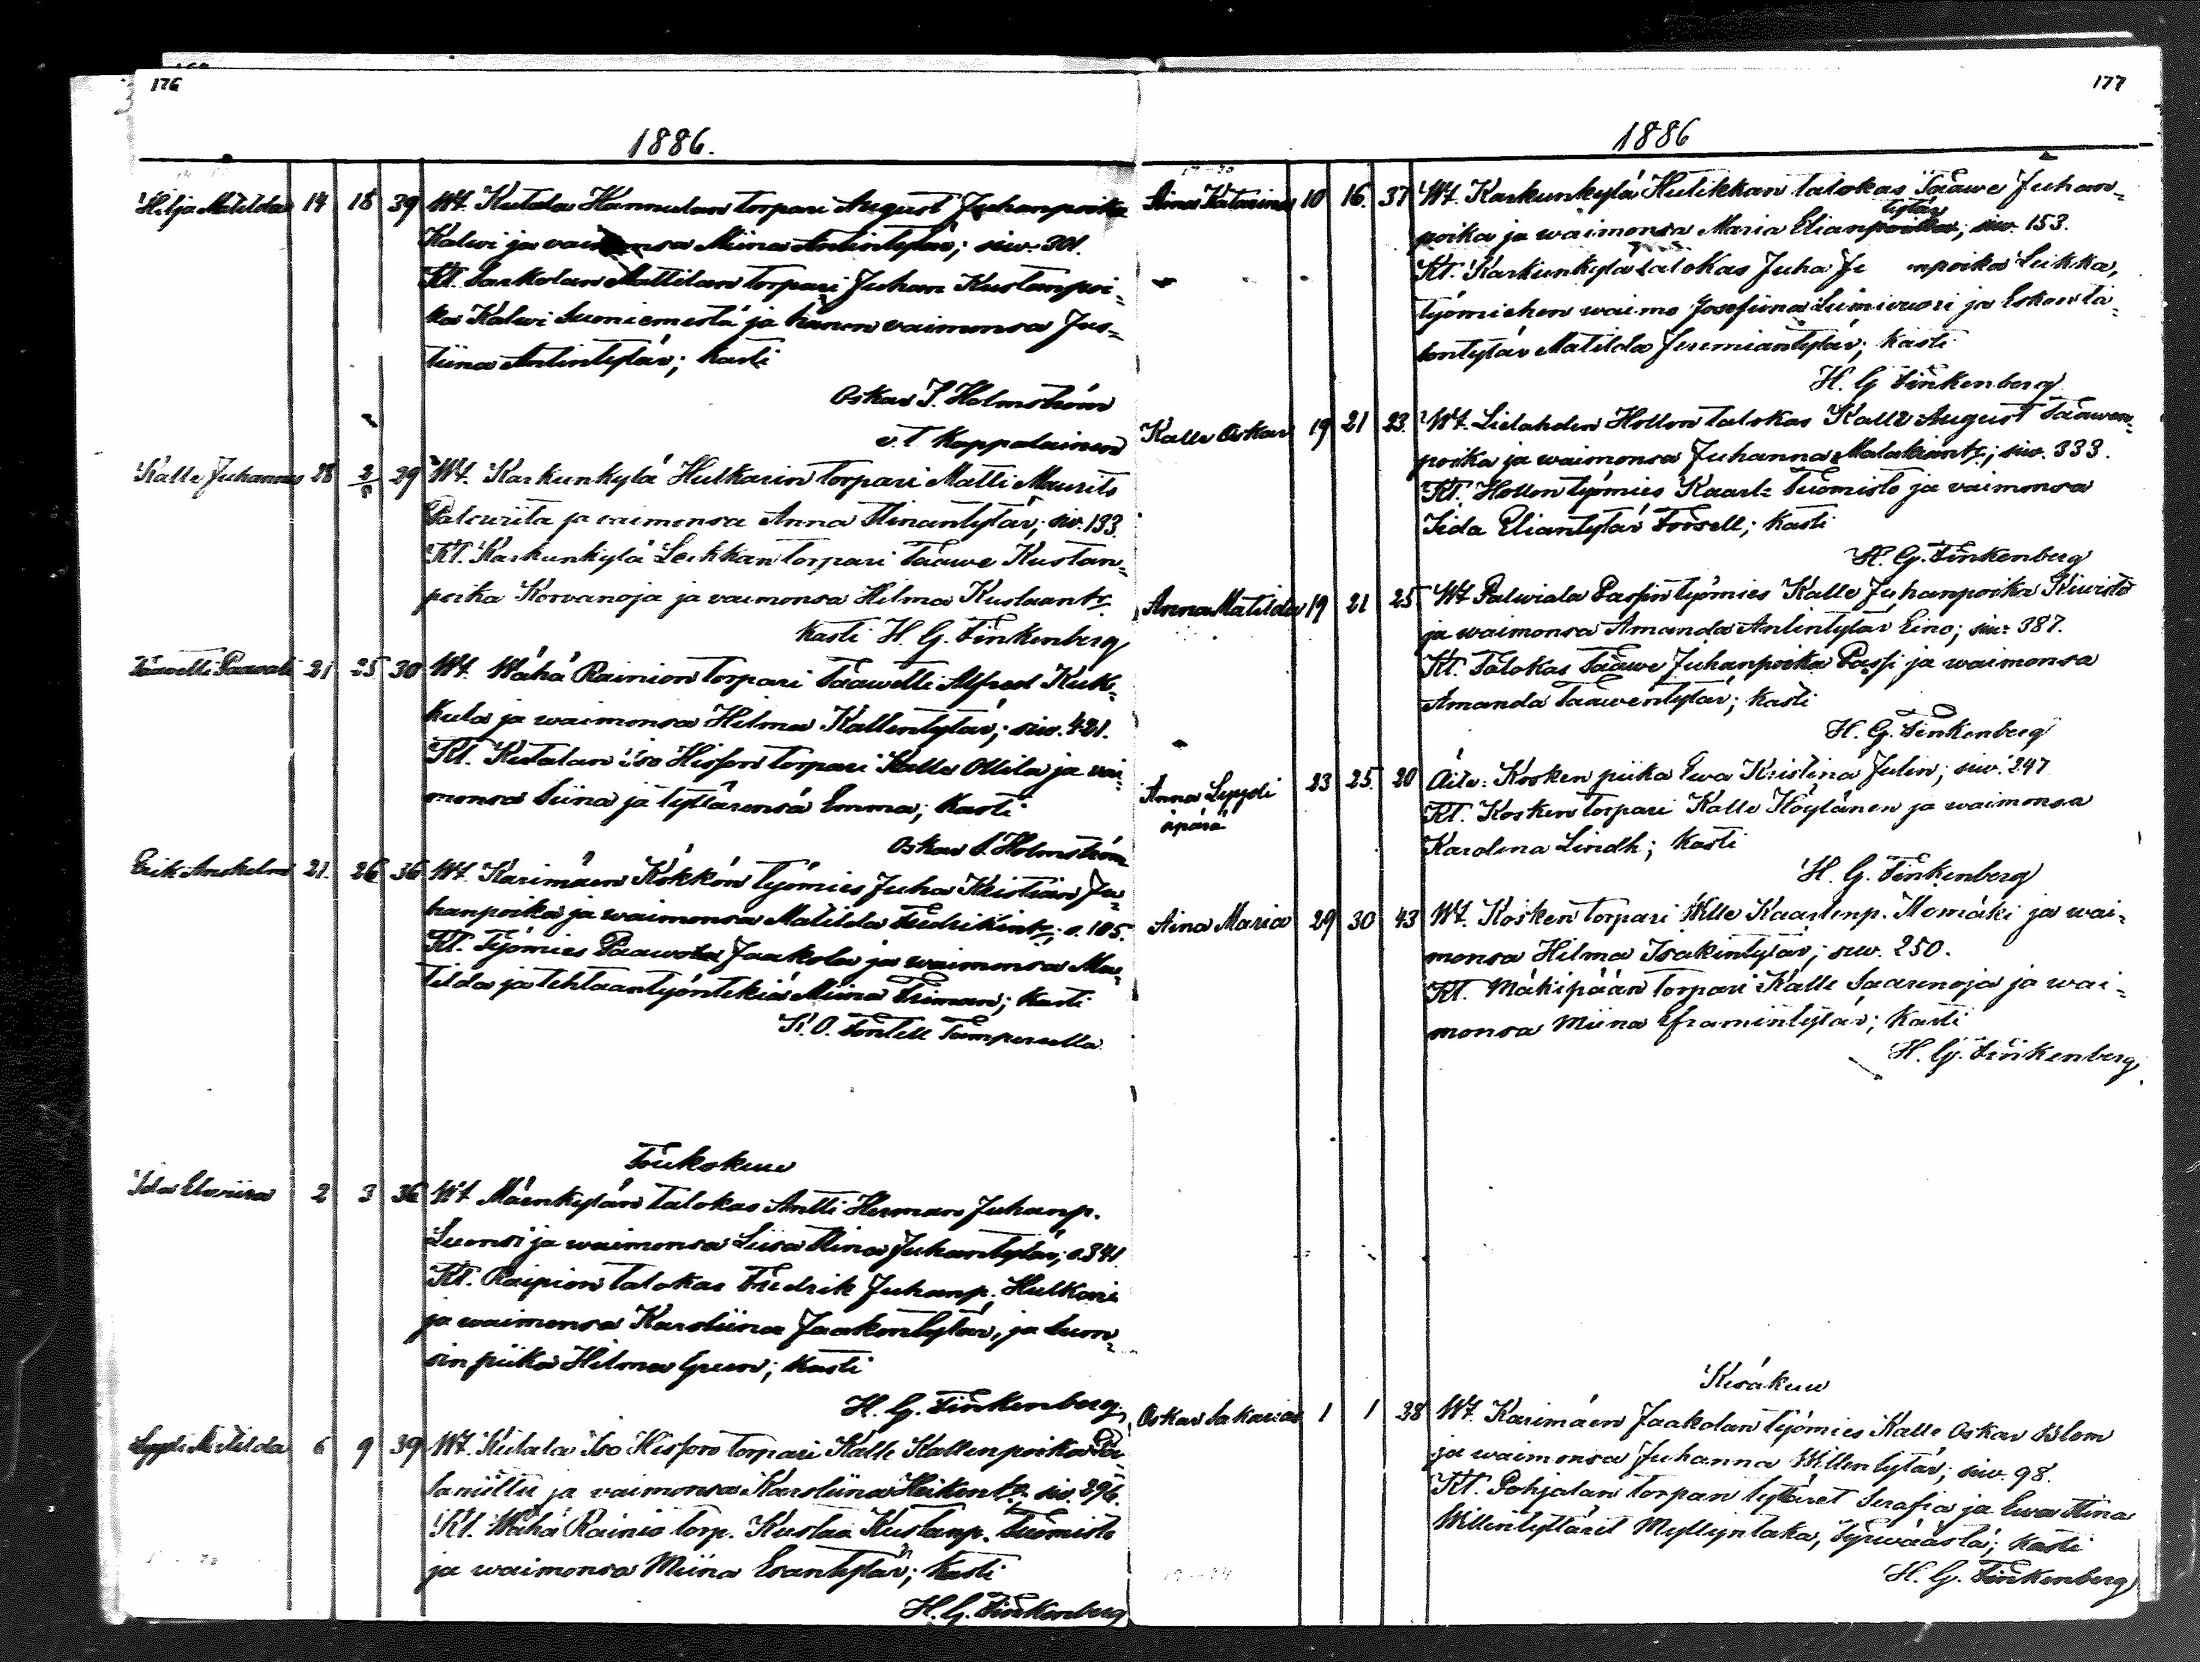 176
1886.
Hilja Matilda 14 18 39 Wt. Kutala Hannulan torpari August Juhanpoika
Kalwi ja vaimonsa Miina Antintytär; siw. 301.
Kt. Sarkolan Mattilan torpari Juhan Kustanpoi-
ka Kalwi Suniemestä ja hänen vaimonsa Jus-
tiina Antintytär; kasti
Oskar S. Holmström
v. t. Kappalainen
Kalle Juhannes 28 2/5 29 Wt. Karkunkylä Hulkarin torpari Matti Maurits
ja vaimonsa Anna Stinantytär; siv. 133.
Kt. Karkunkylä Leikkan torpari Taawe Kustan-
poika Korvanoja ja vaimonsa Hilma Kustaantr.
kasti H. G. Finkenberg
Taavetti Paavali 21 25 30 Wt. Wähä Rainion torpari Taawetti Alfred Kuk-
kula ja waimonsa Helma Kallentytär; siw. 421.
Kt. Kutalan iso Hissan torpari Kalle Ollila ja vai-
monsa Siina ja tyttärensä Emma; kasti
Oskar S. Holmström
Erik Anshelm 21. 26 36 Wt. Karimäen Kökkön työmies Juha Kristian Ju-
hanpoika ja waimonsa Matilda Fredrikintr; s. 105.
Kt. Työmies Paawola Jaakola ja waimonsa Ma-
tilda ja tehtaantyöntekiä Miina Friman; kasti
K. O. Fontell Tampereella
Toukokuu
Ida Elviira 2 3 36 Wt. Mäenkylän talokas Antti Herman Juhanp.
Luonsi ja waimonsa Liisa Stina Juhantytär; s. 341.
Kt. Raipion talokas Fredrik Juhanp. Hulkari
ja waimonsa Karoliina Jaakontytär, ja Luon-
sin piika Hilma Gren; kasti
H. G. Finkenberg
Lyydi Matilda 6 9 39 Wt. Kutala Iso Hissan torpari Kalle Kallenpoika Pa-
laniittu ja vaimonsa Karoliina Heikentr. siv. 296.
Kt. Wähä Rainio torp. Kustaa Kustanp. Tuomisto
ja waimonsa Miina Esantytär; kasti
H. G. Finkenberg
177
1886
Aina Katarina 10 16. 37 Wt. Karkunkylä Hulikkan talokas Taawe Juhan-
tytär
poika ja waimonsa Maria Elianpoika; siw. 153.
Kt. Karkunkylä talokas Juha Je mpoika Leikka,
työmiehen waimo Josefiina Lumivuori ja Eskon ta-
lontytär Matilda Jeremiantytär; kasti
H. G. Finkenberg
Kalle Oskar 19 21 23. Wt. Lielahden Hollon talokas Kalle August Taawen-
poika ja waimonsa Juhanna Malakiantr; siw. 333.
Kt. Hollon työmies Kaarle Tuomisto ja vaimonsa
Iida Eliantytär Forsell; kasti
H. G. Finkenberg
Anna Matilda 19 21 25 Wt. Palwiala Passin työmies Kalle Juhanpoika Kiwistö
ja waimonsa Amanda Antintytär Eino; siw. 387.
Kt. Talokas Taawe Juhanpoika Passi ja waimonsa
Amanda Taawentytär; kasti
H. G. Finkenberg
Anna Lyydi 23 25. 20 Äite: Kosken piika Ewa Kristina Julin; siw. 247
äpärä
Kt. Kosken torpari Kalle Köylänen ja waimonsa
Karolina Lindh; kasti
H. G. Finkenberg
Aina Maria 29 30 43 Wt. Kosken torpari Wille Kaarlenp. Nomäki ja wai-
monsa Hilma Isakintytär; siw. 250.
Kt. Mäkipään torpari Kalle Saarenoja ja wai-
monsa Miina Eframintytär; kasti
H. G. Finkenberg
Kesäkuu
Oskar Sakarias 1 1 28 Wt. Karimäen Jaakolan työmies Kalle Oskar Blom
ja waimonsa Juhanna Willentytär; siw. 98.
Kt. Pohjalan torpan tytäret Serafia ja Ewa Stina
Willentyttäret Myllyntaka, Tyrwäästä; kasti
H. G. Finkenberg